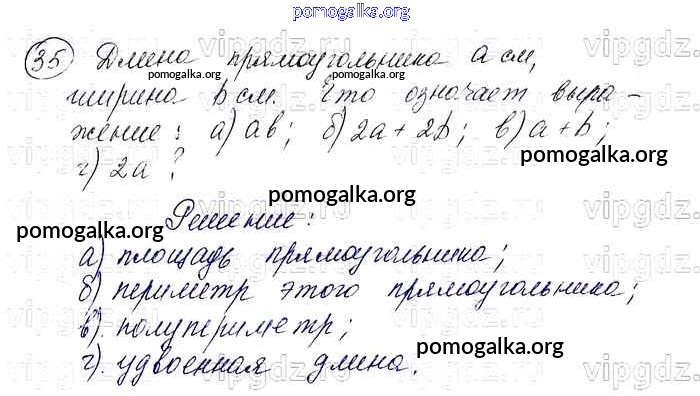 pomogalka.org
35 Длина прямоугольника a см,
pomogalka.org pomogalka.org
ширина b см. Что означает выра-
жение: а) ab; б) 2a + 2b; в) a + b;
pomogalka.org
г) 2a ?
pomogalka.org
Решение:
pomogalka.org pomogalka.org
а) площадь прямоугольника;
б) периметр этого прямоугольника;
в). полупериметр;
pomogalka.org
г). удвоенная длина.
vipgdz.ru